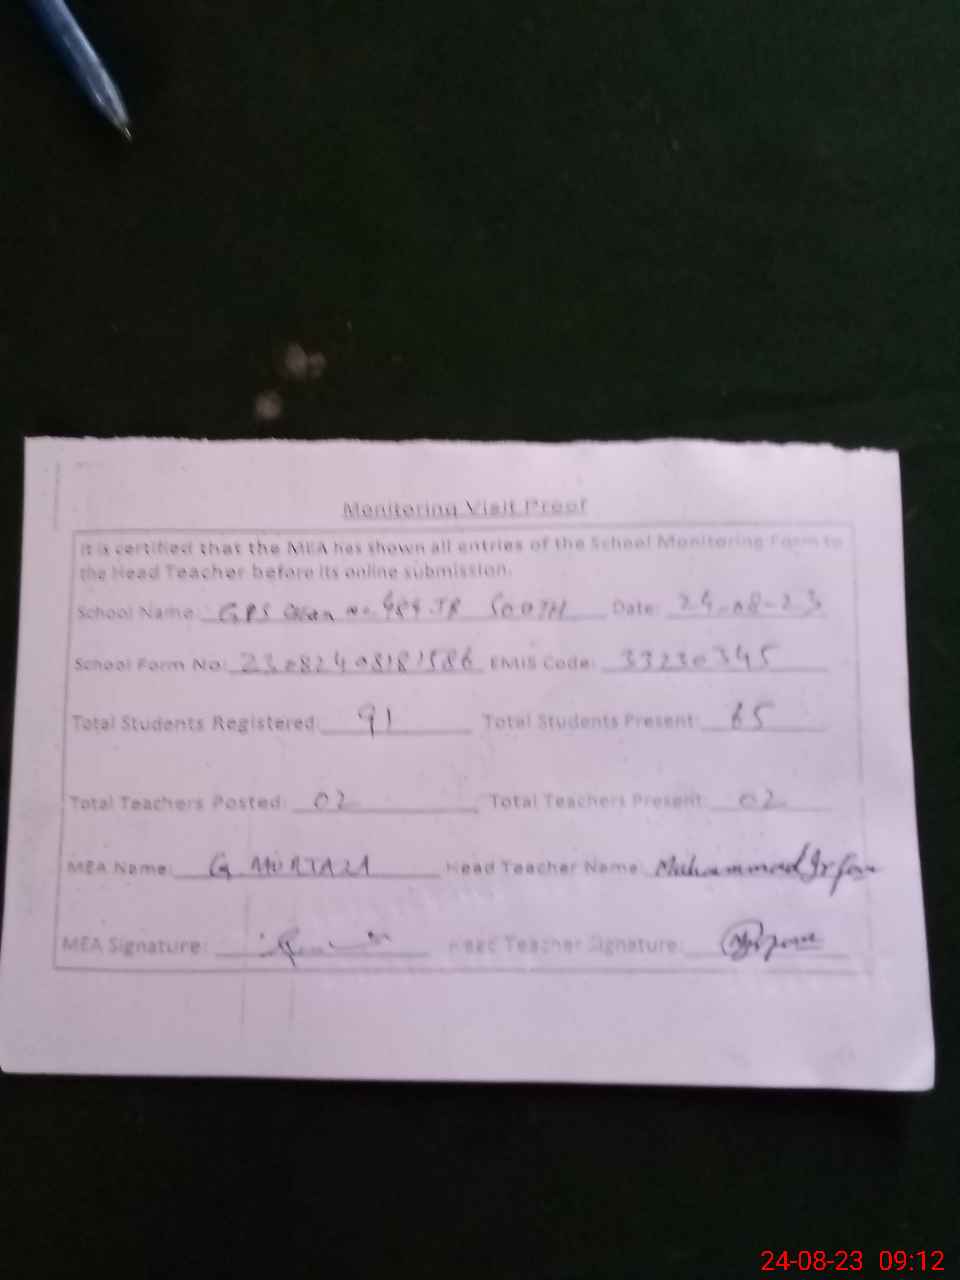 Monitoring Visit Proof
It is certified that the MEA has shown all entries of the School Monitoring Form to
the Head Teacher before its online submission.
School Name: GPS Chak no. 484 JB SOUTH Date: 24-08-23
School Form No: EMIS Code: 33230345
Total Students Registered: 91 Total Students Present: 65
Total Teachers Posted: 02 Total Teachers Present: 02
MEA Name: G MURTAZA Head Teacher Name: Muhammad Irfan
MEA Signature: Head Teacher Signature:
24-08-23 09:12